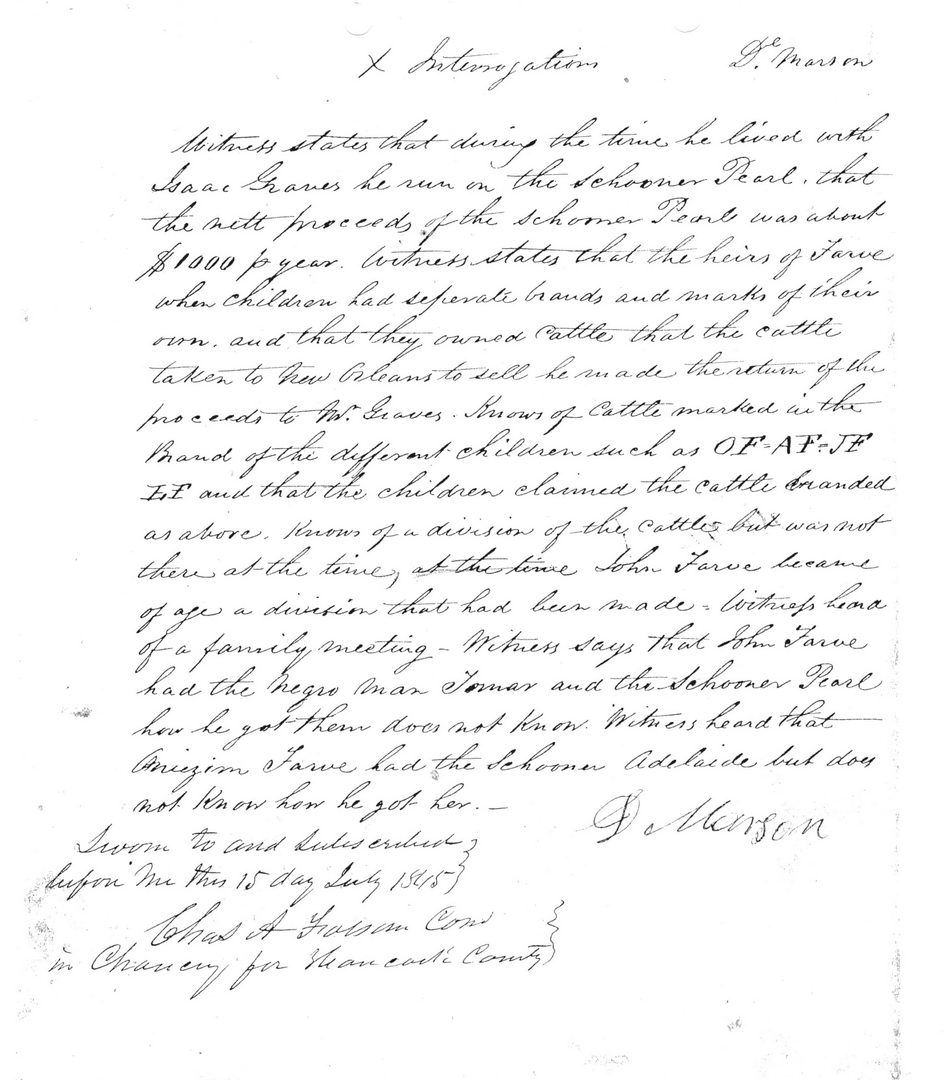 X Interrogations De. Marson
Witness states that during the time he lived with
Isaac Graves he run on the schooner Pearl, that
the nett proceeds of the schooner Pearl was about
$1000 p year. Witness states that the heirs of Farve
when children had seperate brands and marks of their
own. and that they owned cattle that the cattle
taken to New Orleans to sell he made the return of the
proceeds to Mr. Graves. Knows of cattle marked in the
Brand of the different children such as OF=AF=JF
LF and that the children claimed the cattle branded
as above. Knows of a division of the cattle but was not
there at the time, at the time John Farve became
of age a division that had been made = Witness heard
of a family meeting - Witness says that John Farve
had the Negro man Tomar and the Schooner Pearl
how he got them does not Know. Witness heard that
Farve had the schooner Adelaide but does
not Know how he got her. -
D Marson
Sworn to and subscribed
before Me this 15 day July 1845
Chas A Folsom Com
in Chancery for Hancock County